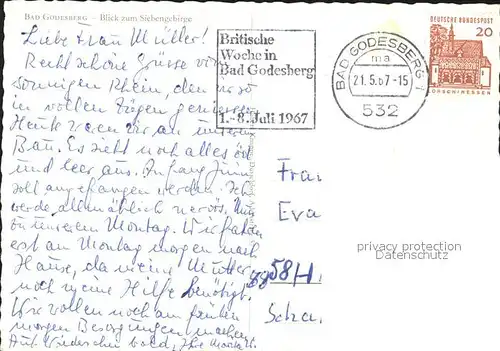 BAD GODESBERG – Blick zum Siebengebirge
Liebe Frau Müller!
Recht schöne Grüsse vom
sonnigen Rhein, den wir so
in vollen Zügen geniessen.
Heute waren wir an unserem
Bau. Es sieht noch alles öd
und leer aus. Anfang Juni
soll angefangen werden. Ich
werde allmählich nervös. Nun
zu unserem Montag. Wir fahren
erst am Montag morgen nach
Hause, da meine Mutter
noch meine Hilfe benötigt.
Wir wollen noch am frühen
morgen Besorgungen machen.
Auf Wiedersehen bald, Ihre
Britische
Woche in
Bad Godesberg
1.-8. Juli 1967
BAD GODESBERG 1
ma
21.5.67-15
532
DEUTSCHE BUNDESPOST
20
LORSCH/HESSEN
Frau
Eva
58 H.
privacy protection
Datenschutz